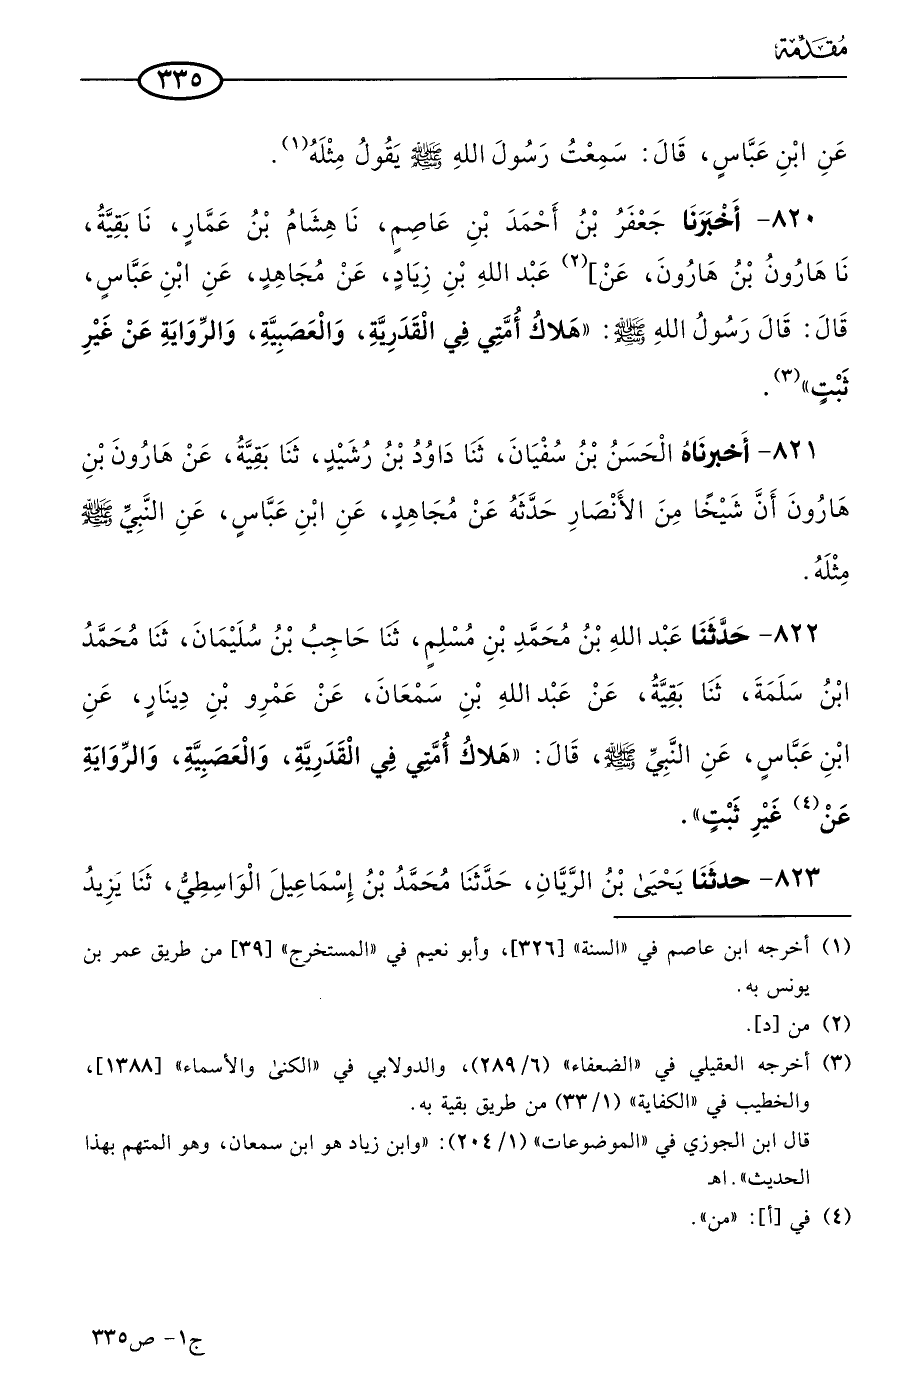 مُقَدِّمَة
٣٣٥
عَنِ ابْنِ عَبَّاسٍ، قَالَ: سَمِعْتُ رَسُولَ اللهِ ﷺ يَقُولُ مِثْلَهُ(١).
٨٢٠- أَخْبَرَنَا جَعْفَرُ بْنُ أَحْمَدَ بْنِ عَاصِمٍ، نَا هِشَامُ بْنُ عَمَّارٍ، نَا بَقِيَّةُ،
نَا هَارُونُ بْنُ هَارُونَ، عَنْ](٢) عَبْدِ اللهِ بْنِ زِيَادٍ، عَنْ مُجَاهِدٍ، عَنِ ابْنِ عَبَّاسٍ،
قَالَ: قَالَ رَسُولُ اللهِ ﷺ: «هَلَاكُ أُمَّتِي فِي الْقَدَرِيَّةِ، وَالْعَصَبِيَّةِ، وَالرِّوَايَةِ عَنْ غَيْرِ
ثَبْتٍ»(٣).
٨٢١- أَخبرنَاهُ الْحَسَنُ بْنُ سُفْيَانَ، ثَنَا دَاوُدُ بْنُ رُشَيْدٍ، ثَنَا بَقِيَّةُ، عَنْ هَارُونَ بْنِ
هَارُونَ أَنَّ شَيْخًا مِنَ الأَنْصَارِ حَدَّثَهُ عَنْ مُجَاهِدٍ، عَنِ ابْنِ عَبَّاسٍ، عَنِ النَّبِيِّ ﷺ
مِثْلَهُ.
٨٢٢- حَدَّثَنَا عَبْد اللهِ بْنُ مُحَمَّدِ بْنِ مُسْلِمٍ، ثَنَا حَاجِبُ بْنُ سُلَيْمَانَ، ثَنَا مُحَمَّدُ
ابْنُ سَلَمَةَ، ثَنَا بَقِيَّةُ، عَنْ عَبْدِ اللهِ بْنِ سَمْعَانَ، عَنْ عَمْرِو بْنِ دِينَارٍ، عَنِ
ابْنِ عَبَّاسٍ، عَنِ النَّبِيِّ ﷺ، قَالَ: «هَلَاكُ أُمَّتِي فِي الْقَدَرِيَّةِ، وَالْعَصَبِيَّةِ، وَالرِّوَايَةِ
عَنْ(٤) غَيْرِ ثَبْتٍ».
٨٢٣- حدثَنَا يَحْيَىٰ بْنُ الرَّيَّانِ، حَدَّثَنَا مُحَمَّدُ بْنُ إِسْمَاعِيلَ الْوَاسِطِيُّ، ثَنَا يَزِيدُ
(١) أخرجه ابن عاصم في «السنة» [٣٢٦]، وأبو نعيم في «المستخرج» [٣٩] من طريق عمر بن
يونس به.
(٢) من [د].
(٣) أخرجه العقيلي في «الضعفاء» (٦/ ٢٨٩)، والدولابي في «الكنىٰ والأسماء» [١٣٨٨]،
والخطيب في «الكفاية» (١/ ٣٣) من طريق بقية به.
قال ابن الجوزي في «الموضوعات» (١/ ٢٠٤): «وابن زياد هو ابن سمعان، وهو المتهم بهذا
الحديث». اهـ
(٤) في [أ]: «من».
ج١- ص٣٣٥